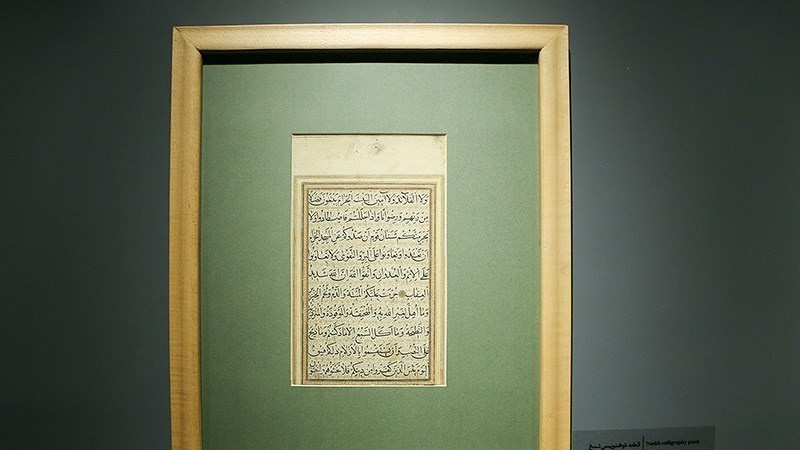 ولا القلائد ولا آمين البيت الحرام يبتغون فضلا
من ربهم ورضوانا واذا حللتم فاصطادوا ولا
يجرمنكم شنآن قوم ان صدوكم عن المسجد الحرام
ان تعتدوا وتعاونوا على البر والتقوى ولا تعاونوا
على الاثم والعدوان واتقوا الله ان الله شديد
العقاب حرمت عليكم الميتة والدم ولحم الخنزير
وما اهل لغير الله به والمنخنقة والموقوذة والمتردية
والنطيحة وما اكل السبع الا ما ذكيتم وما ذبح
على النصب وان تستقسموا بالازلام ذلكم فسق
اليوم يئس الذين كفروا من دينكم فلا تخشوهم واخشون
قطعه خوشنویسی نسخ
Naskh calligraphy piece